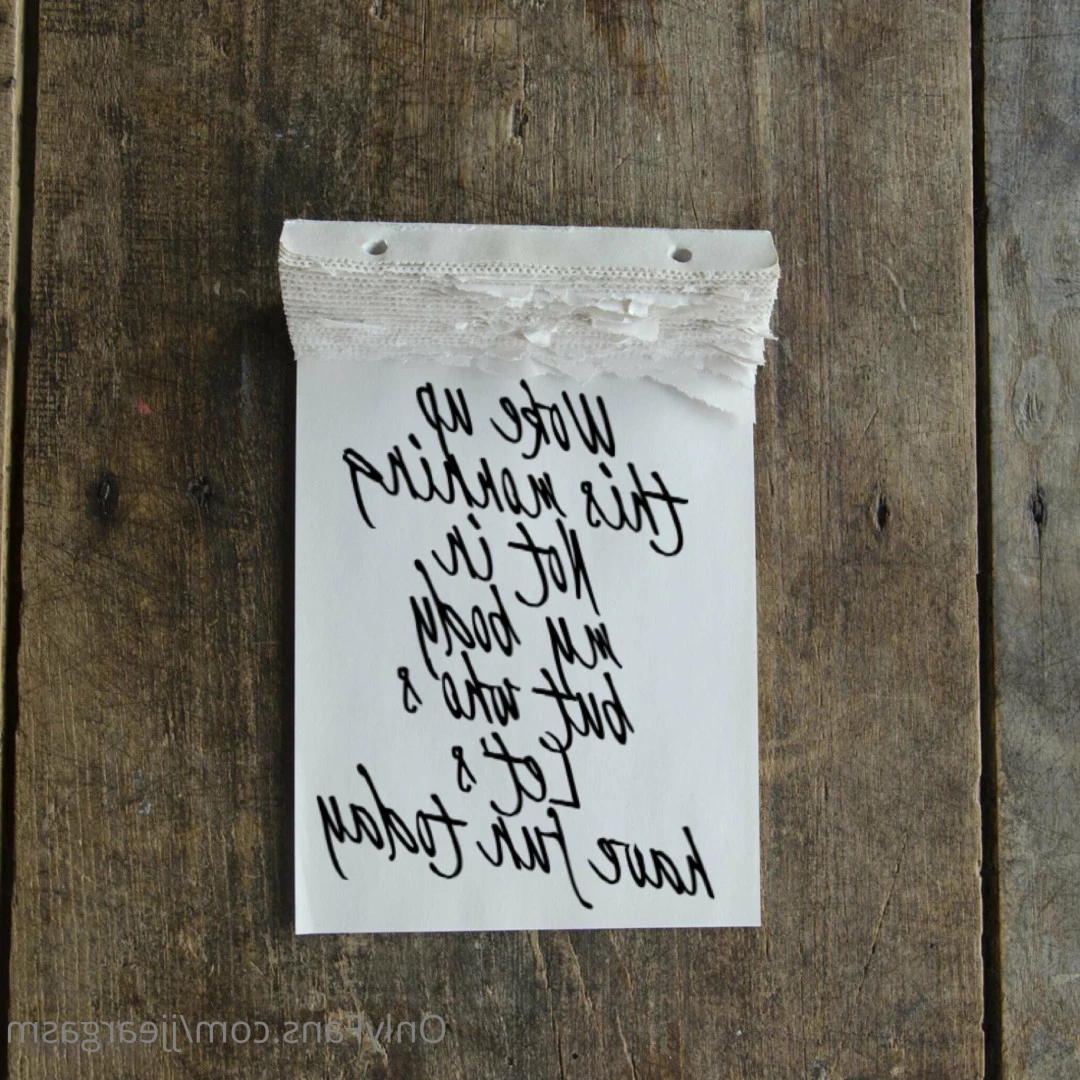 Woke up
this morning
Not in
my body
but who's
Let's
have fun today
OnlyFans.com/jjeargasm